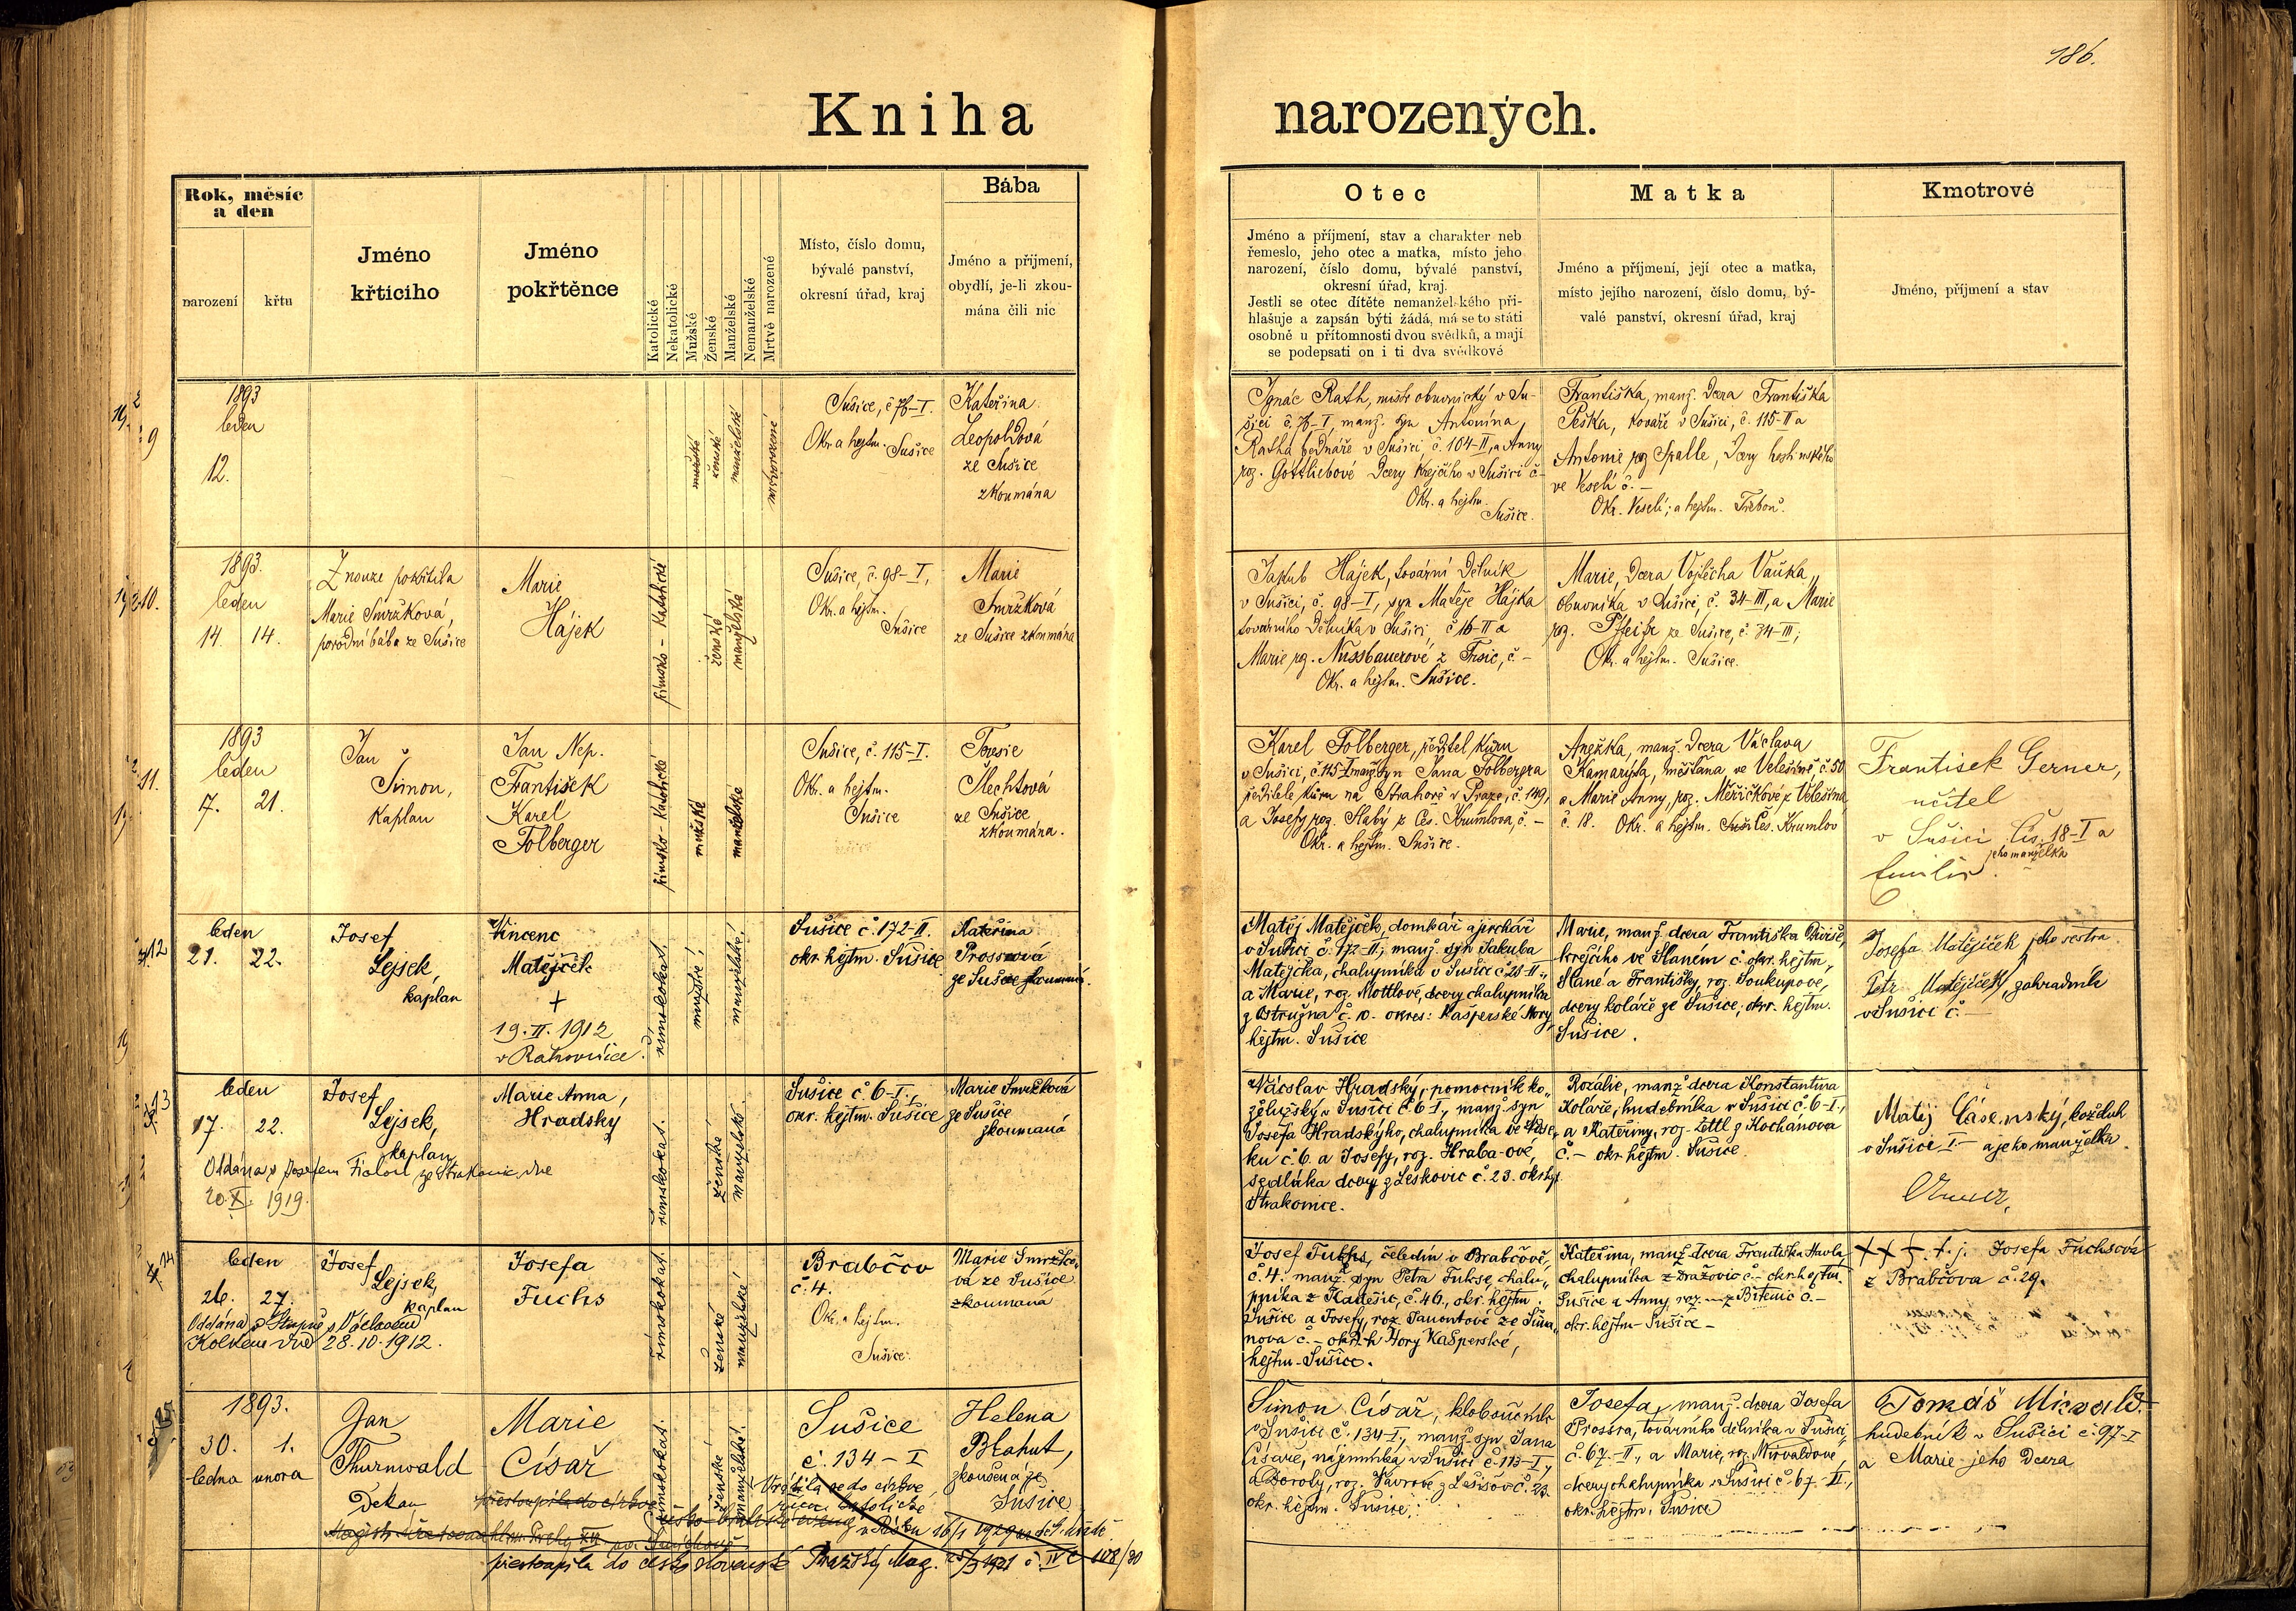 186.
Kniha
narozených.
Rok, měsíc
a den
narození
křtu
Jméno
křticího
Jméno
pokřtěnce
Katolické
Nekatolické
Mužské
Ženské
Manželské
Nemanželské
Mrtvě narozené
Místo, číslo domu,
bývalé panství,
okresní úřad, kraj
Bába
Jméno a přijmení,
obydlí, je-li zkou-
mána čili nic
Otec
Jméno a příjmení, stav a charakter neb
řemeslo, jeho otec a matka, místo jeho
narození, číslo domu, bývalé panství,
okresní úřad, kraj.
Jestli se otec dítěte nemanželského při-
hlašuje a zapsán býti žádá, má se to státi
osobně u přítomnosti dvou svědků, a mají
se podepsati on i ti dva svědkové
Matka
Jméno a příjmení, její otec a matka,
místo jejího narození, číslo domu, bý-
valé panství, okresní úřad, kraj
Kmotrové
Jméno, příjmení a stav
9
1893
leden
12.
mužské
ženské
manželské
Sušice, č 76-I.
Okr. a hejtm. Sušice
Kateřina
Leopoldová
ze Sušice
zkoumána
Ignác Rath, mistr obuvnický v Su-
šici č. 76-I, manž. syn Antonína
Ratha, bednáře v Sušici, č 104-II, a Anny
roz. Gottliebové dcery krejčího v Sušici č-
Okr. a hejtm.
Sušice.
Františka, manž. dcera Františka
Peška, kováře v Sušici, č. 115-II a
Antonie roz Spalle, dcery hostinského
ve Veselí č. -
Okr. Veselí; a hejtm. Třeboň.
10.
1893.
leden
14. 14.
Z nouze pokřtila
Marie Smržková,
porodní bába ze Sušice
Marie
Hájek
římsko-katolické
ženské
manželské
Sušice, č. 98-I,
Okr. a hejtm.
Sušice
Marie
Smržková
ze Sušice zkoumána
Jakub Hájek, tovární dělník
v Sušici, č. 98-I, syn Matěje Hájka
továrního dělníka v Sušici, č 16-II a
Marie roz. Nussbauerové z Trsic, č. -
Okr. a hejtm. Sušice.
Marie, dcera Vojtěcha Vaňka,
obuvníka v Sušici, č. 34-III, a Marie
roz. Pfeifr ze Sušice, č. 34-III;
Okr. a hejtm. Sušice.
11.
1893
leden
17. 21.
Jan
Šimon,
kaplan
Jan Nep.
František
Karel
Folberger
římsko-katolické
mužské
manželské
Sušice, č. 115-I.
Okr. a hejtm.
Sušice
Teresie
Šlechtová
ze Sušice
zkoumána.
Karel Folberger, ředitel kůru
v Sušici, č. 115-I manž. syn Jana Folbergra
ředitele kůru na Strahově v Praze, č. 149,
a Josefy roz. Slabý z Čes. Krumlova, č. -
Okr. a hejtm. Sušice.
Anežka, manž. dcera Václava
Kamarýta, měšťana ve Velešíně, č. 50
a Marie Anny, roz. Měřičkové z Velešína
č. 18. Okr. a hejtm. Čes. Krumlov
František Gerner,
učitel
v Sušici, čís. 18-I a
jeho manželka
Emilie.
12
leden
21. 22.
Josef
Lejsek,
kaplan
Vincenc
Matějíček
+
19. II. 1912
v Rakovníce
římskokat.
mužské;
manželské;
Sušice č. 172-II.
okr. hejtm. Sušice
Kateřina
Prossrová
ze Sušice zkoumaná.
Matěj Matějíček, domkář a jirchář
v Sušici č. 172-II; manž. syn Jakuba
Matějíčka, chalupníka v Sušici č 28-II.,
a Marie, roz. Mottlové, dcery chalupníka
z Ostružna č. 10. okres: Kašperské Hory
hejtm. Sušice
Marie, manž. dcera Františka
krejčího ve Slaném č. okr. hejtm.
Slané a Františky, roz. Soukupové,
dcery koláře ze Sušice; okr. hejtm.
Sušice.
Josefa Matějíček jeho sestra
Petr Matějíček, zahradník
v Sušici č. -
13
leden
17. 22.
Josef
Lejsek,
kaplan
Oddána s Josefem Fialou ze Strakonic, dne
20. X. 1919.
Marie Anna,
Hradský
římskokat.
ženské
manželské
Sušice č. 6-I.,
okr. hejtm. Sušice
Marie Smržková
ze Sušice
zkoumaná
Václav Hradský, pomocník ko-
želužský v Sušici č. 6-I., manž. syn
Josefa Hradskýho, chalupníka ve
ku č. 6. a Josefy, roz. Hraba-ové,
sedláka dcery z Leskovic č. 23.
Strakonice.
Rozálie, manž dcera Konstantina
Koláře, hudebníka v Sušici č. 6-I.,
a Kateřiny, roz. Zettl z Kochánova
č. - okr hejtm. Sušice.
Matěj Časenský, koželuh
v Sušici I.- a jeho manželka.
Anna.
14
leden
26. 27.
Josef
Lejsek,
kaplan
Oddána s Václavem
dne 28.10.1912.
Josefa
Fuchs
římskokat.
ženské
manželské
Brabčov
č. 4.
Okr. a hejtm.
Sušice.
Marie Smržko-
vá ze Sušice
zkoumaná
Josef Fuchs, čeledín v Brabčově,
č. 4. manž. syn Petra Fukse, chalu-
pníka z Kadešic, č. 46., okr. hejtm.
Sušice a Josefy, roz. Janontové ze
nova č. - okr. h Hory Kašperské,
hejtm. Sušice.
Kateřina, manž. dcera Františka Havla,
chalupníka z Dražovic č.- okr. hejtm.
Sušice a Anny, roz. - z Bítenic č. -
okr. hejtm - Sušice -
+++ t. j. Josefa Fuchsová
z Brabčova č. 29.
15.
1893.
30. 1.
ledna února
Jan
Thurnwald
Děkan
Marie
Císař
římskokat.
ženské
manželské
Sušice
č. 134-I
Helena
Blahut,
zkoušená ze
Sušice
přestoupila do církve
Vrátila se do církve
římsk. katolické
přestoupila do československé Pražský Mag.
Šimon Císař, kloboučník
v Sušici č. 134-I., manž. syn Jana
Císaře, nájemníka v Sušici č. 113-I.,
a Doroty, roz. Vavrové z Lešišov č. 23.
okr. hejtm. Sušice.
Josefa, manž. dcera Josefa
Prossra, továrního dělníka v Sušici,
č. 67.-II., a Marie, roz. Mirvaldové,
dcery chalupníka v Sušici č. 67.-II.,
okr. hejtm. Sušice
Tomáš Mirvald.
hudebník v Sušici č. 97-I
a Marie jeho dcera